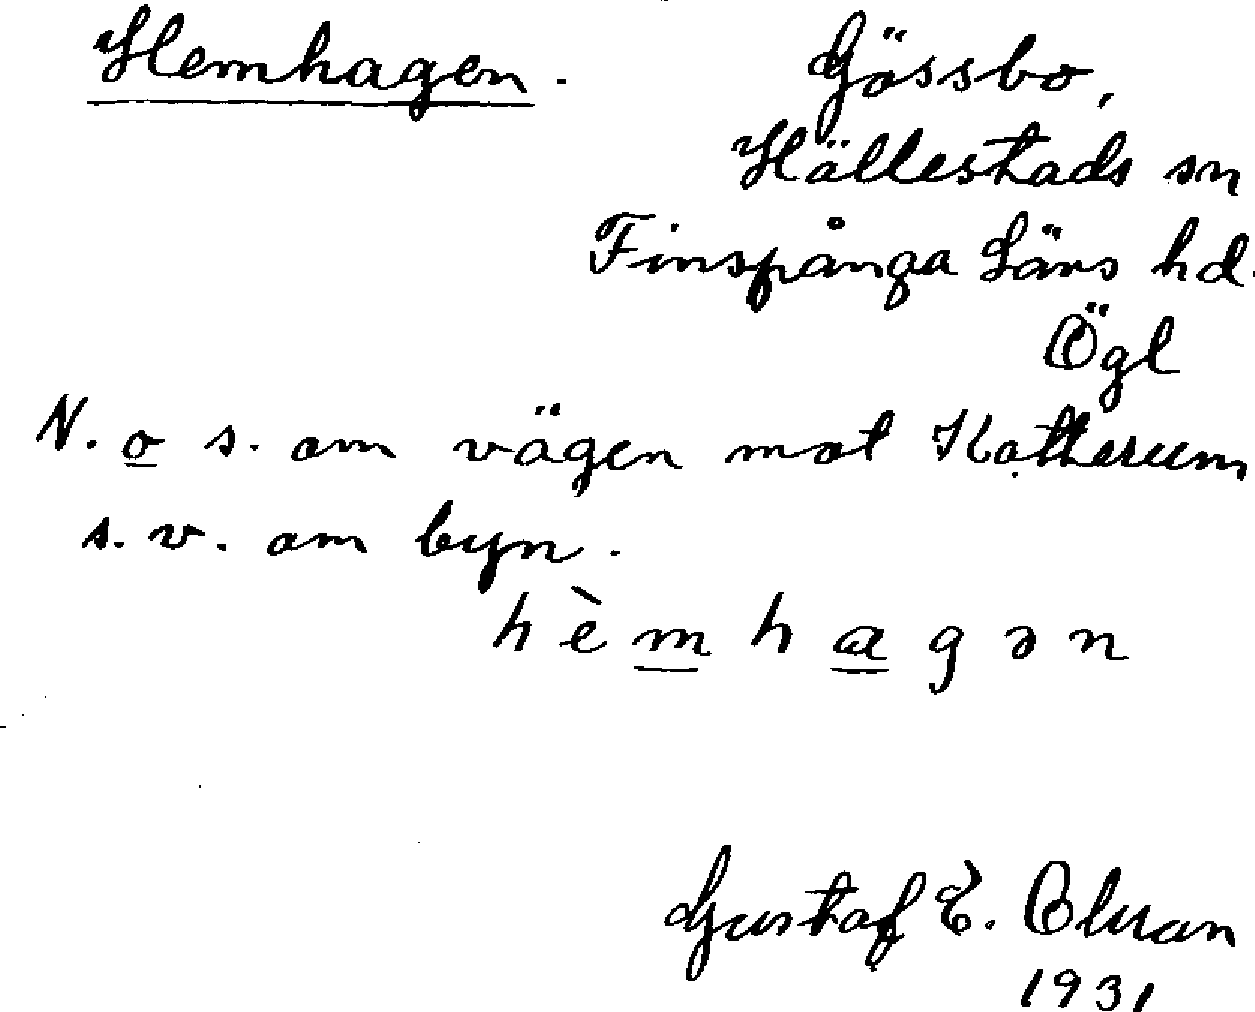 Hemhagen.
Gössbo,
Hällestads sn
Finspånga Läns hd.
Ögl
N. o s. om vägen mot Kottherum
s.v. om byn.
hèmhagən
Gustaf E.
1931